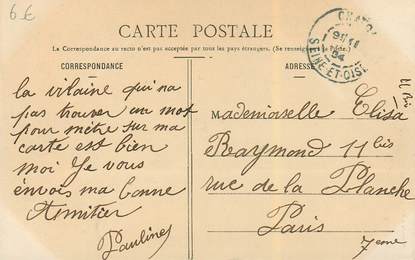 6€
CARTE POSTALE
La Correspondance au recto n'est pas acceptée par tous les pays étrangers. (Se renseigner à la Poste).
CORRESPONDANCE
ADRESSE
SEINE-ET-OISE
la vilaine qui na
pas trouver un mot
pour mètre sur ma
carte est bien
moi Je vous
envois ma bonne
Amitier
Pauline
Mademoiselle Elisa
Raymond 11 bis
rue de la Planche
Paris
7eme